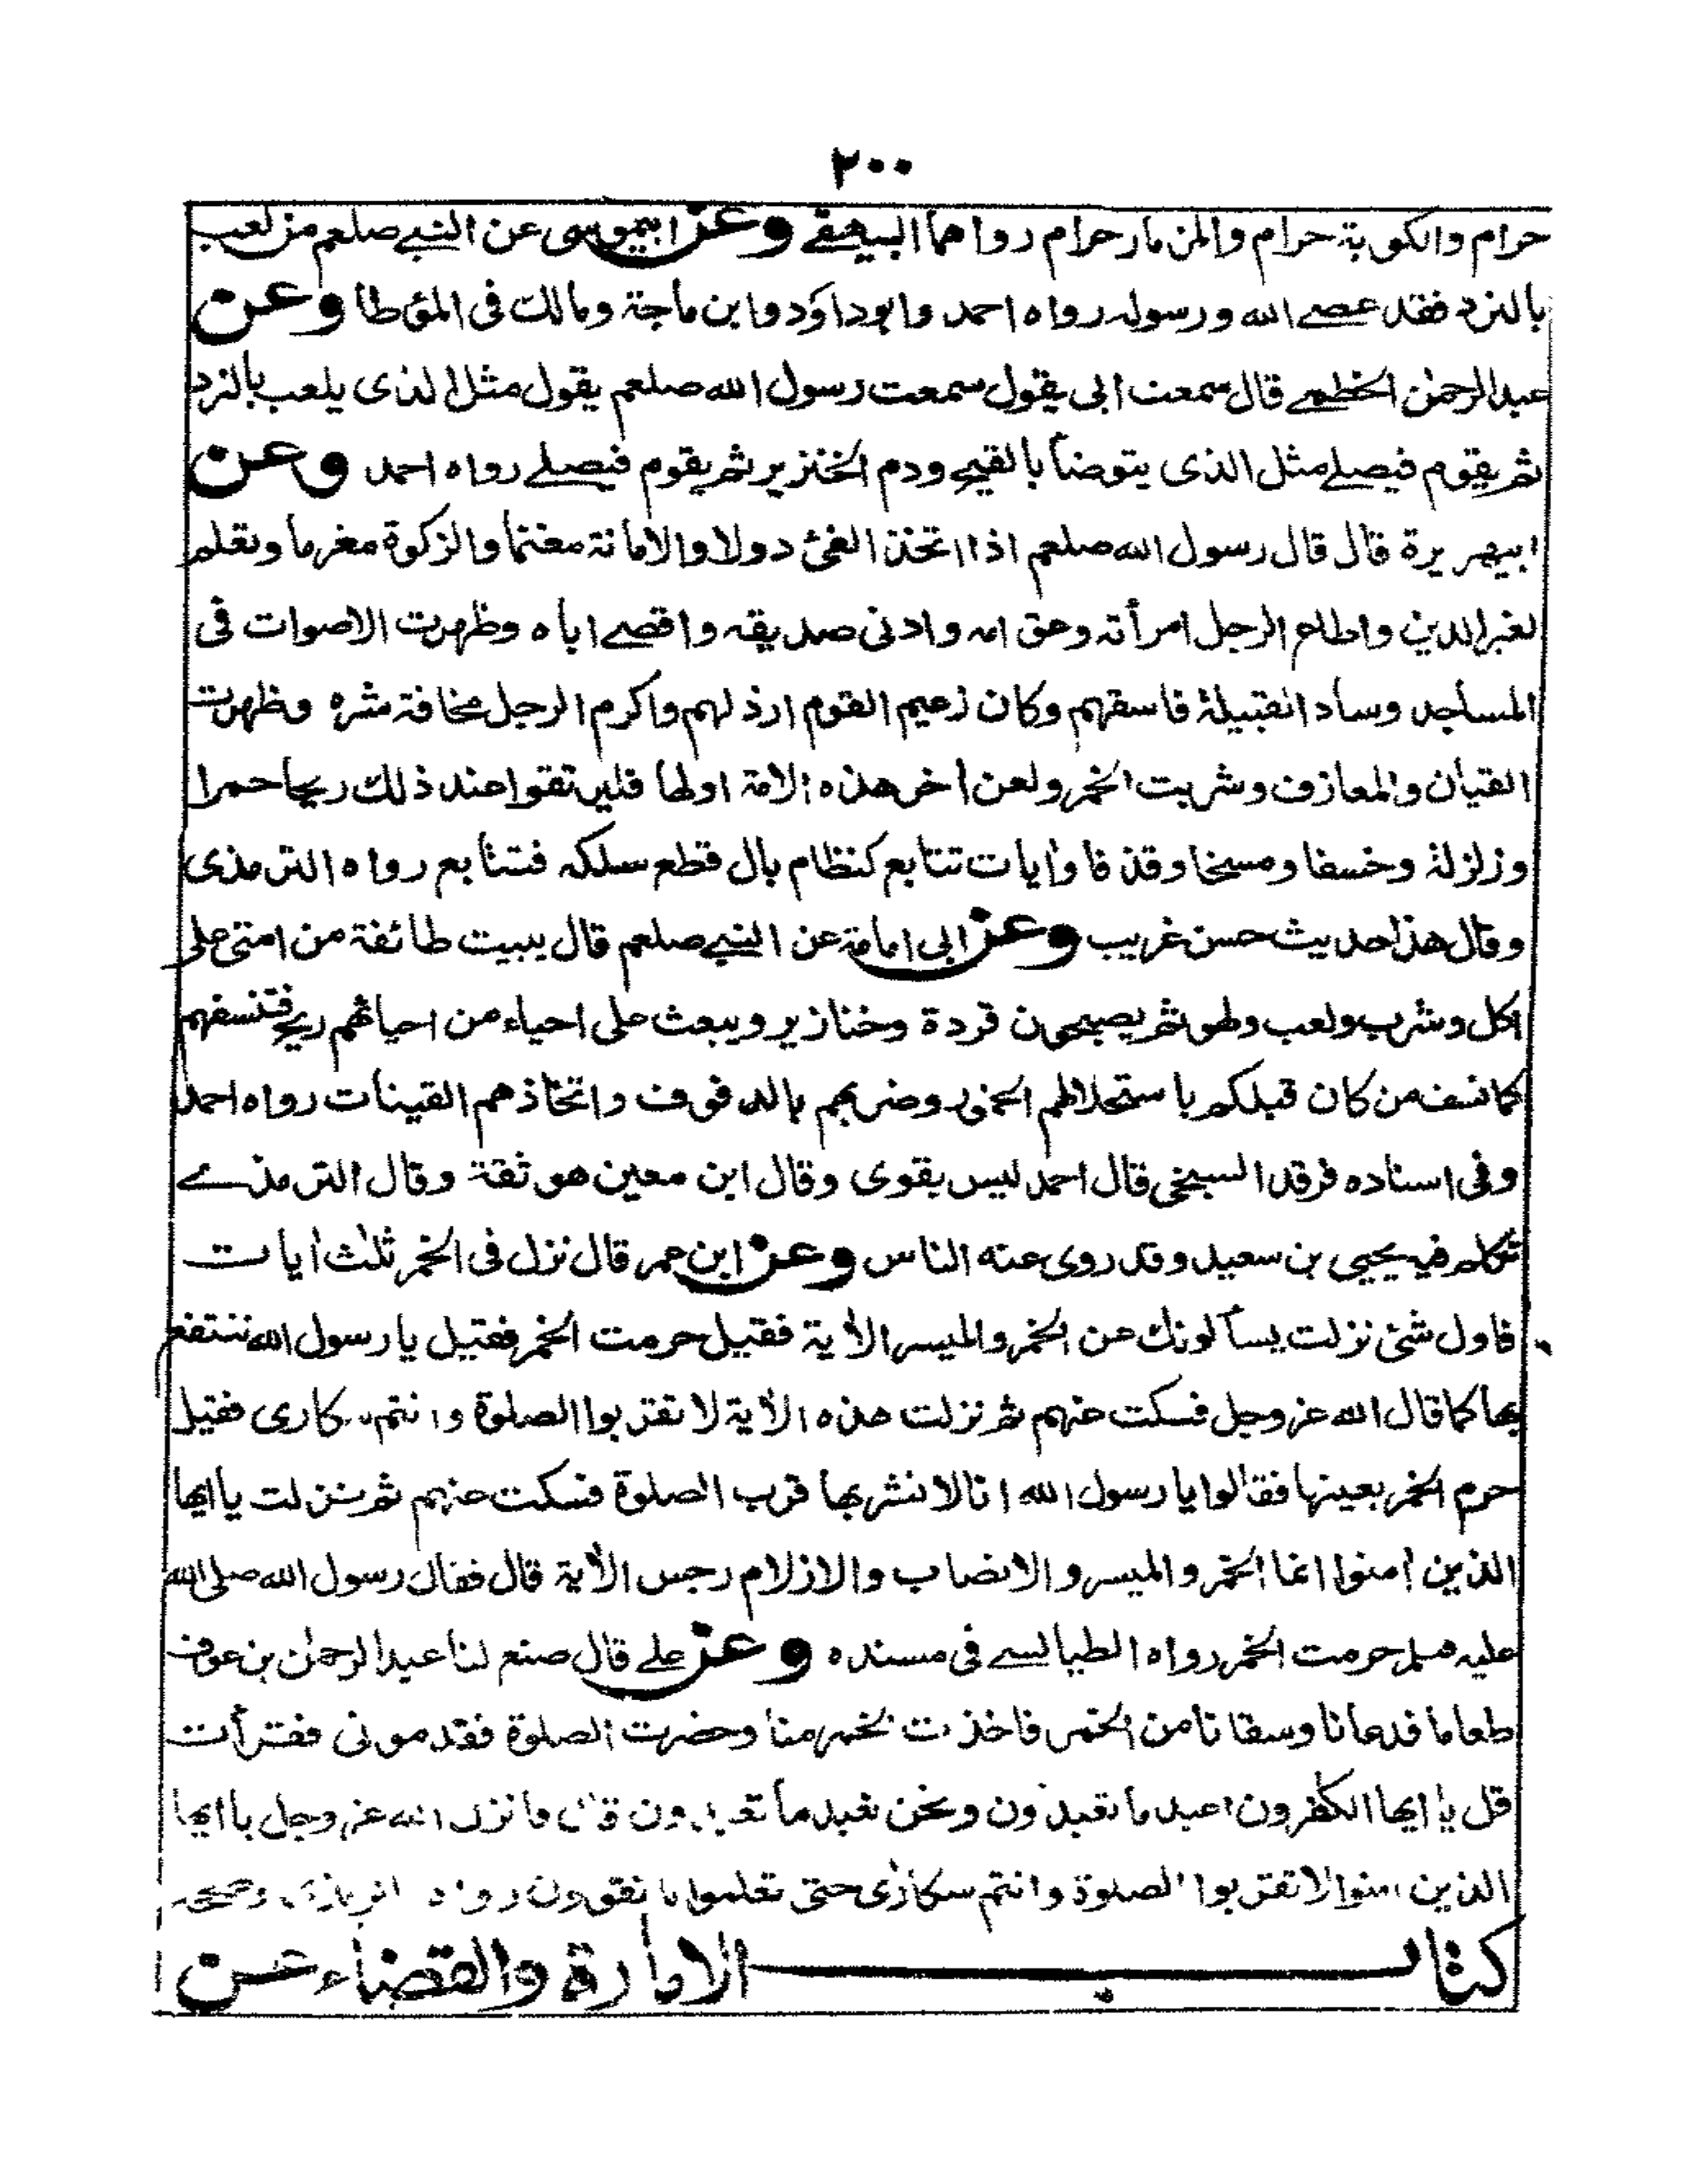 ٢٠٠
حرام والكوبة حرام والمزمار حرام رواهما البيهقے وعن ابيموسى عن النبے صلعم من لعب
بالنرد فقد عصے الله ورسوله رواه احمد وابوداؤد وابن ماجة ومالك فى المؤطا وعن
عبدالرحمٰن الخطمے قال سمعت ابى يقول سمعت رسول الله صلعم يقول مثل الذى يلعب بالنرد
ثم يقوم فيصلے مثل الذى يتوضأ بالقيح ودم الخنزير ثم يقوم فيصلے رواه احمد وعن
ابيهريرة قال قال رسول الله صلعم اذا اتخذ الفئ دولا والامانة مغنما والزكوة مغرما وتعلم
لغير الدين واطاع الرجل امرأته وعق امه وادنى صديقه واقصے اباه وظهرت الاصوات فى
المساجد وساد القبيلة فاسقهم وكان زعيم القوم ارذلهم واكرم الرجل مخافة شره وظهرت
القيان والمعازف وشربت الخمر ولعن أخر هذه الامة اولها فليرتقوا عند ذلك ريحا حمرا
وزلزلة وخسفا ومسخا وقذفا وأيات تتابع كنظام بال قطع سلكه فتتابع رواه الترمذى
وقال هذا حديث حسن غريب وعن ابى امامة عن النبے صلعم قال يبيت طائفة من امتى على
اكل وشرب ولعب ولهو ثم يصبحون قردة وخنازير ويبعث على احياء من احيائهم ريح فتنسفهم
كما نسف من كان قبلكم باستحلالهم الخمور وضربهم بالدفوف واتخاذهم القينات رواه احمد
وفى اسناده فرقد السبخى قال احمد ليس بقوى وقال ابن معين هو ثقة وقال الترمذے
تكلم فيه يحيى بن سعيد وقد روى عنه الناس وعن ابن عمر قال نزل فى الخمر ثلٰث أيات
فاول شئ نزلت يسألونك عن الخمر والميسر الأية فقيل حرمت الخمر فقيل يا رسول الله ننتفع
بها كما قال الله عز وجل فسكت عنهم ثم نزلت هذه الأية لا تقربوا الصلوة وانتم سكارى فقيل
حرم الخمر بعينها فقالوا يا رسول الله انا لا نشربها قرب الصلوة فسكت عنهم ثم نزلت يا ايها
الذين أمنوا انما الخمر والميسر والانصاب والازلام رجس الأية قال فقال رسول الله صلى الله
عليه وسلم حرمت الخمر رواه الطيالسے فى مسنده وعن علے قال صنع لنا عبدالرحمٰن بن عوف
طعاما فدعانا وسقانا من الخمر فاخذت الخمر منا وحضرت الصلوة فقدمونى فقرأت
قل يا ايها الكٰفرون اعبد ما تعبدون ونحن نعبد ما تعبدون قال فانزل الله عز وجل يا ايها
الذين امنوا لا تقربوا الصلوة وانتم سكارٰى حتى تعلموا ما تقولون رواه الترمذى وصححه
كتاب الامارة والقضاء عن